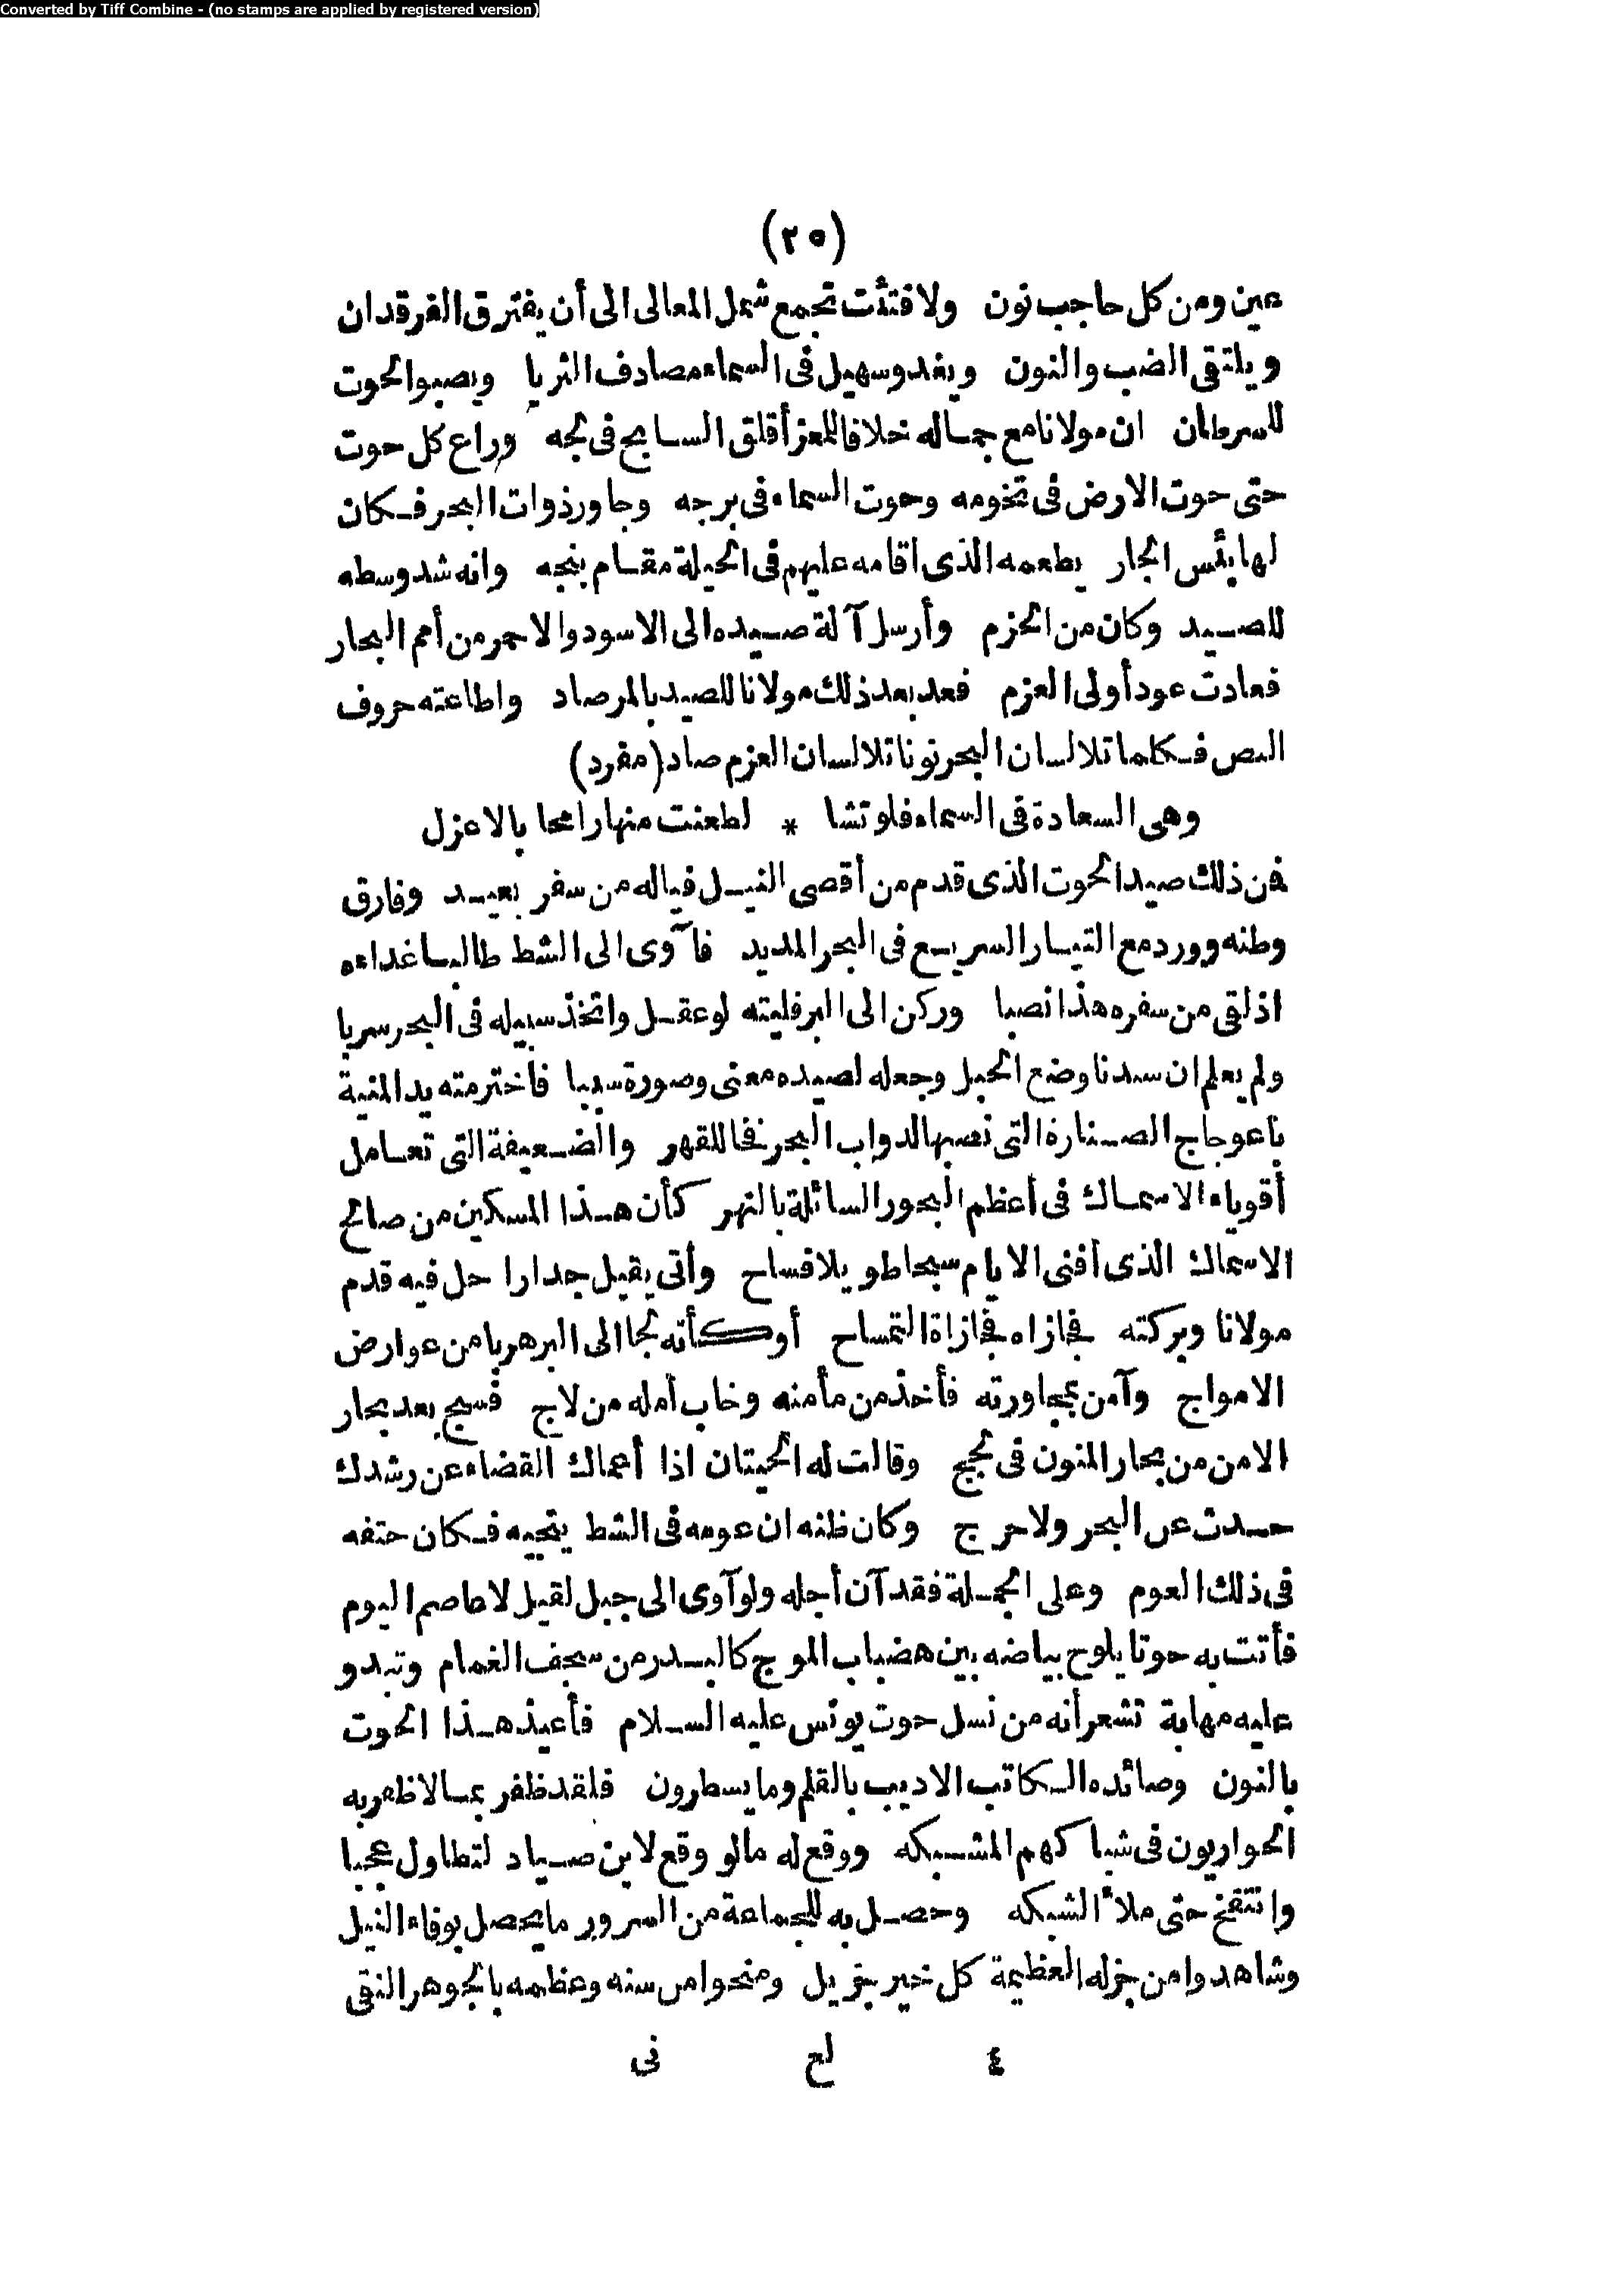 Converted by Tiff Combine - (no stamps are applied by registered version)
(٢٥)
عين ومن كل حاجب نون ولا فتئت تجمع شمل المعالى الى أن يفترق الفرقدان
ويلتقى الضب والنون ويغدو سهيل فى السماء مصادف الثريا ويصبو الحوت
للسرطان ان مولانا مع جماله خلافا للمعز أقلق السابح فى لجه وراع كل حوت
حتى حوت الارض فى تخومه وحوت السماء فى برجه وجاور ذوات البحر فكان
لها بئس الجار يطعمه الذى أقامه عليهم فى الحيلة مقام بنجه وانه شد وسطه
للصيد وكان من الحزم وأرسل آلة صيده الى الاسود والاحمر من أمم البحار
فعادت عود أولى العزم فعد بعد ذلك مولانا للصيد بالمرصاد واطاعته حروف
النص فكلما تلا لسان البحر نونا تلا لسان العزم صاد (مفرد)
وهى السعادة فى السماء فلو تشا * لطعنت منها رامحا بالاعزل
فمن ذلك صيد الحوت الذى قدم من أقصى النيل فياله من سفر بعيد وفارق
وطنه وورد مع التيار السريع فى البحر المديد فآوى الى الشط طالبا غداءه
اذ لقى من سفره هذا نصبا وركن الى البر فليته لو عقل واتخذ سبيله فى البحر سربا
ولم يعلم ان سيدنا وضع الحبل وجعله لصيده معنى وصورة سببا فاخترمته يد المنية
باعوجاج الصنارة التى نصبها لدواب البحر فخا للقهر والضعيفة التى تعامل
أقوياء الاسماك فى أعظم البحور السائلة بالنهر كأن هذا المسكين من صالح
الاسماك الذى أفنى الايام سبحا طويلا فساح وأتى يقبل جدارا حل فيه قدم
مولانا وبركته فجازاه مجازاة التمساح أو كأنه لجا الى البر هربا من عوارض
الامواج وآمن بمجاورته فأخذ من مأمنه وخاب أمله من لاج فسبح بعد بحار
الامن من بحار المنون فى لجج وقالت له الحيتان اذا أعماك القضاء عن رشدك
حدث عن البحر ولا حرج وكان ظنه ان عومه فى الشط ينجيه فكان حتفه
فى ذلك العوم وعلى الجملة فقد آن أجله ولو آوى الى جبل لقيل لا عاصم اليوم
فأتت به حوتا يلوح بياضه بين هضاب الموج كالبدر من سجف الغمام وتبدو
عليه مهابة تشعر أنه من نسل حوت يونس عليه السلام فأعيذ هذا الحوت
بالنون وصائده الكاتب الاديب بالقلم وما يسطرون فلقد ظفر بما لا ظفر به
الحواريون فى شباكهم المشبكه ووقع له مالو وقع لابن صياد لتطاول عجبا
وانتفخ حتى ملأ الشبكه وحصل به للجماعة من السرور ما يحصل بوفاء النيل
وشاهدوا من جزله العظيمة كل خير جزيل ومنحوا من سنه وعظمه بالجوهر النقى
٤ لح نى